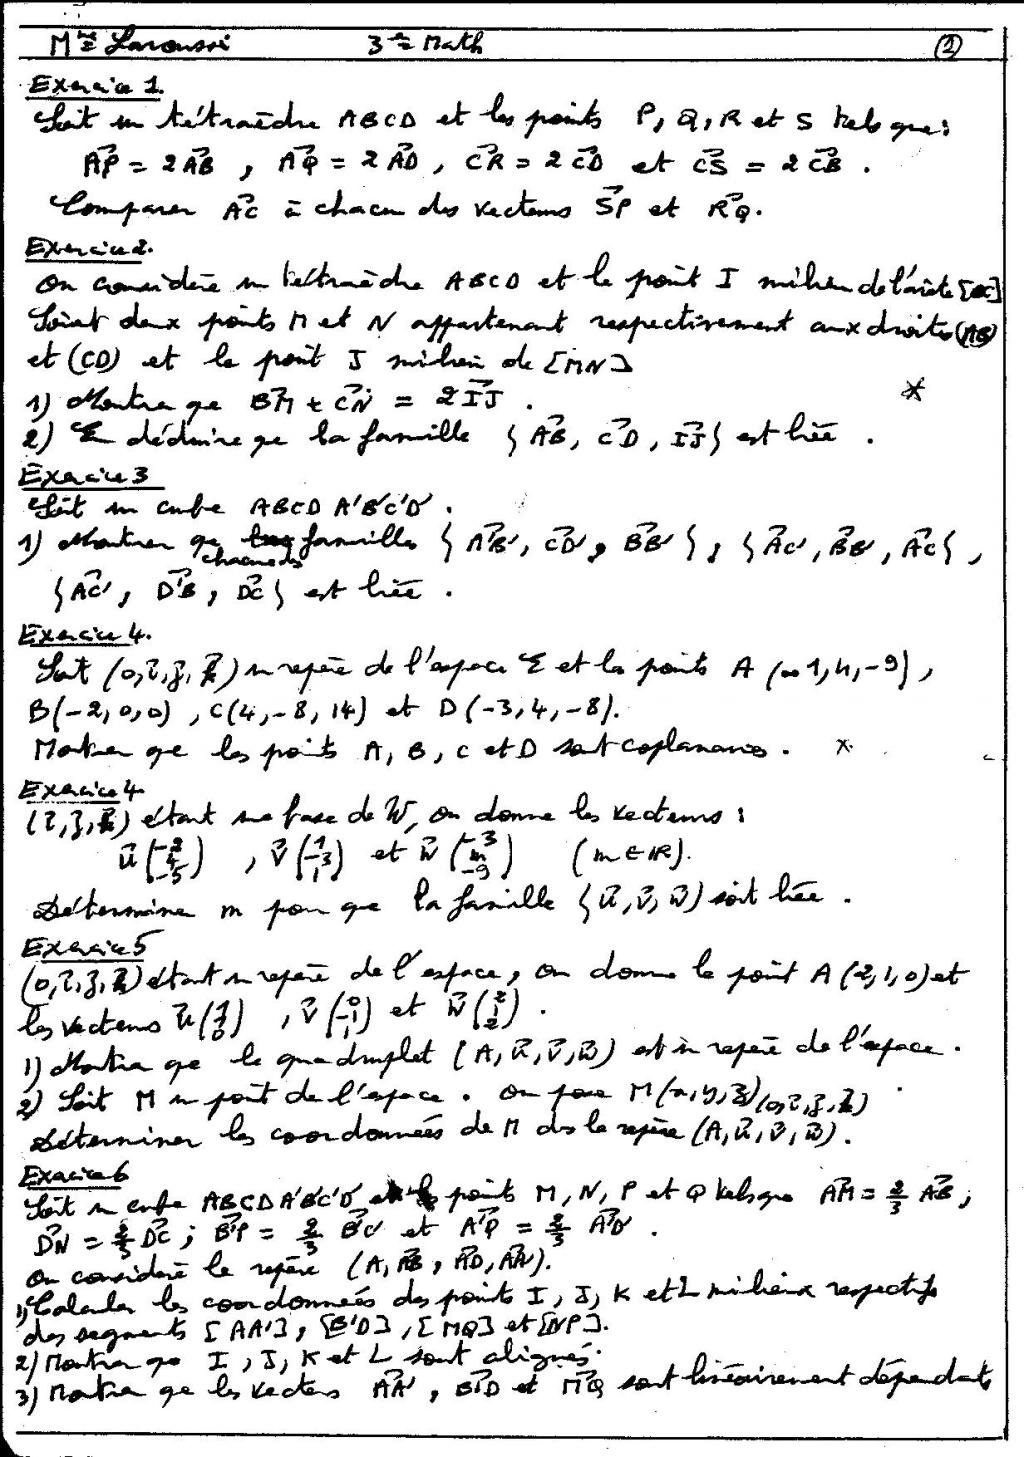 Mme Laroussi 3e Math (2)
Exercice 1.
Soit un tétraèdre ABCD et les points P, Q, R et S tels que :
AP = 2AB , AQ = 2AD , CR = 2CD et CS = 2CB .
Comparer AC à chacun des vecteurs SP et RQ.
Exercice 2.
On considère un tétraèdre ABCD et le point I milieu de l'arête [BC]
Soient deux points M et N appartenant respectivement aux droites (AB)
et (CD) et le point J milieu de [MN]
1) Montrer que BM + CN = 2IJ .
2) En déduire que la famille {AB, CD, IJ} est liée .
Exercice 3
Soit un cube ABCD A'B'C'D' .
1) Montrer que familles {A'B', CD', BB'}, {AC', BB', AC},
chacune des
{AC', D'B, DC} est liée .
Exercice 4.
Soit (O,i,j,k) un repère de l'espace E et les points A ( 1,4,-9),
B(-2,0,0) , C(4,-8,14) et D(-3,4,-8).
Montrer que les points A, B, C et D sont coplanaires .
Exercice 4
(i,j,k) étant une base de W, on donne les vecteurs :
u(-2 4 -5) , v(1 -3 1) et w(-3 m -9) (m ∈ IR).
Déterminer m pour que la famille {u,v,w} soit liée .
Exercice 5
(O,i,j,k) étant un repère de l'espace, on donne le point A(-2,1,0) et
les vecteurs u(1 1 0) , v(0 -1 1) et w(2 1 2) .
1) Montrer que le quadruplet (A,u,v,w) est un repère de l'espace .
2) Soit M un point de l'espace . On pose M(x,y,z)(O,i,j,k)
Déterminer les coordonnées de M ds le repère (A,u,v,w).
Exercice 6
Soit un cube ABCDA'B'C'D' et les points M, N, P et Q tels que AM = 2/3 AB ,
DN = 2/3 DC ; B'P = 2/3 B'C' et A'Q = 2/3 A'D' .
On considère le repère (A, AB, AD, AA').
1) Calculer les coordonnées des points I, J, K et L milieux respectifs
des segments [AA'], [B'D], [MQ] et [NP].
2) Montrer que I, J, K et L sont alignés.
3) Montrer que les vecteurs AA', B'D et MQ sont linéairement dépendants